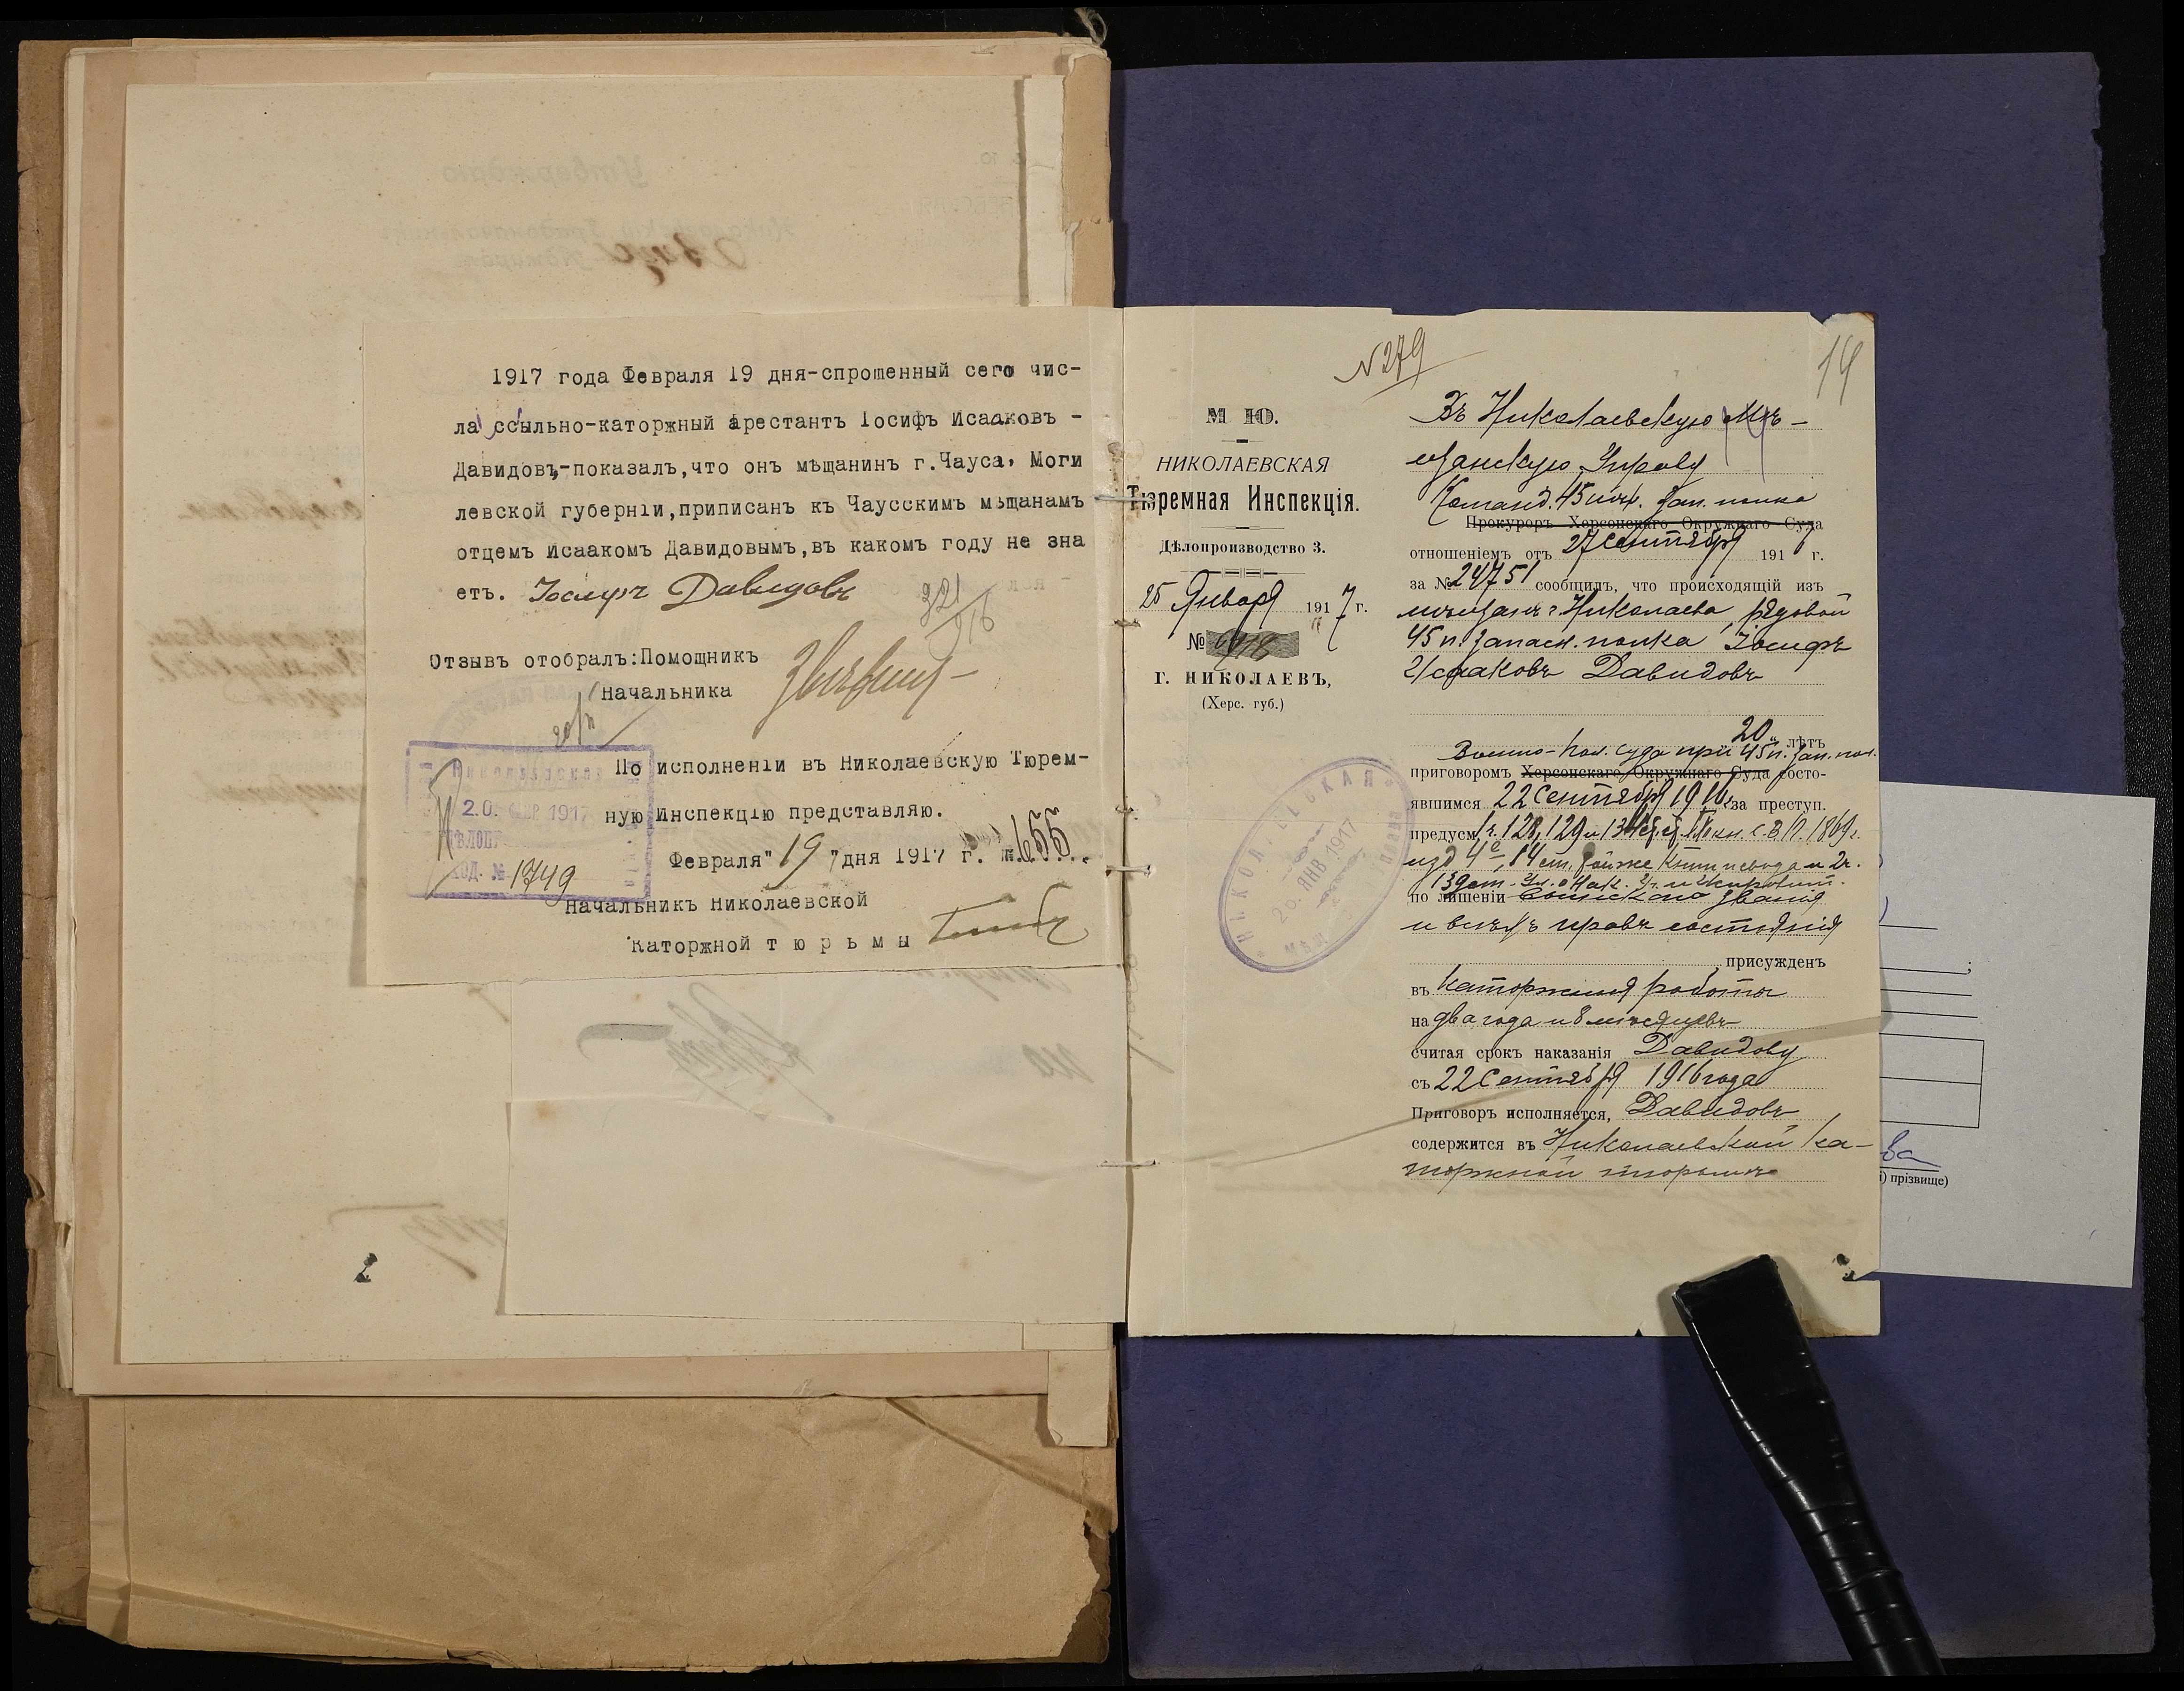 1917 года Февраля 19 дня-спрошенный сего чис-
ла ссыльно-каторжный арестантъ Iосифъ Исааковъ -
Давидовъ,-показалъ,что онъ мѣщанинъ г.Чауса, Моги
левской губернiи,приписанъ къ Чаусскимъ мѣщанамъ
отцемъ Исаакомъ Давидовымъ,въ какомъ году не зна
етъ. Iосифъ Давидовъ
321/916
Отзывъ отобралъ:Помощникъ
Начальника
20/II
По исполненiи въ Николаевскую Тюрем-
ную Инспекцiю представляю.
20. ФЕВР 1917
Февраля" 19 "дня 1917 г. №.655...
ХОД. № 1749
Начальникъ Николаевской
Каторжной т ю р ь м ы
№ 279
14
М Ю.
НИКОЛАЕВСКАЯ
Тюремная Инспекція.
Дѣлопроизводство 3.
25 Января 1917 г.
№
Г. НИКОЛАЕВЪ,
(Херс. губ.)
НИКОЛАЕВСКАЯ
26. ЯНВ 1917
Въ Николаевскую Мѣ-
щанскую Управу
Команд. 45 пѣх. зап. полка
Прокуроръ Херсонскаго Окружнаго Суда
отношеніемъ отъ 27 Сентября 191 г.
за № 24751 сообщилъ, что происходящій изъ
мѣщанъ г. Николаева, рядовой
45 п. запасн. полка Іосифъ
Исааковъ Давидовъ
20 лѣтъ
Военно-Пол. суда при 45 п. зап. пол.
приговоромъ Херсонскаго Окружнаго Суда состо-
явшимся 22 Сентября 1916 за преступ.
предусм. 1 ч. 128, 129 и 134 ст. ст. кн. С. В. П. 1869 г.
изд 4е, 14 ст. той же книги свода и 2 ч.
139 ст. Ул. о Нак.
по лишеніи воинскаго званія
и всѣхъ правъ состоянія
присужденъ
въ каторжныя работы
на два года и 8 мѣсяцевъ
считая срокъ наказанія Давидову
съ 22 Сентября 1916 года
Приговоръ исполняется, Давидовъ
содержится въ Николаевской ка-
торжной тюрьмѣ
ва
) прізвище)